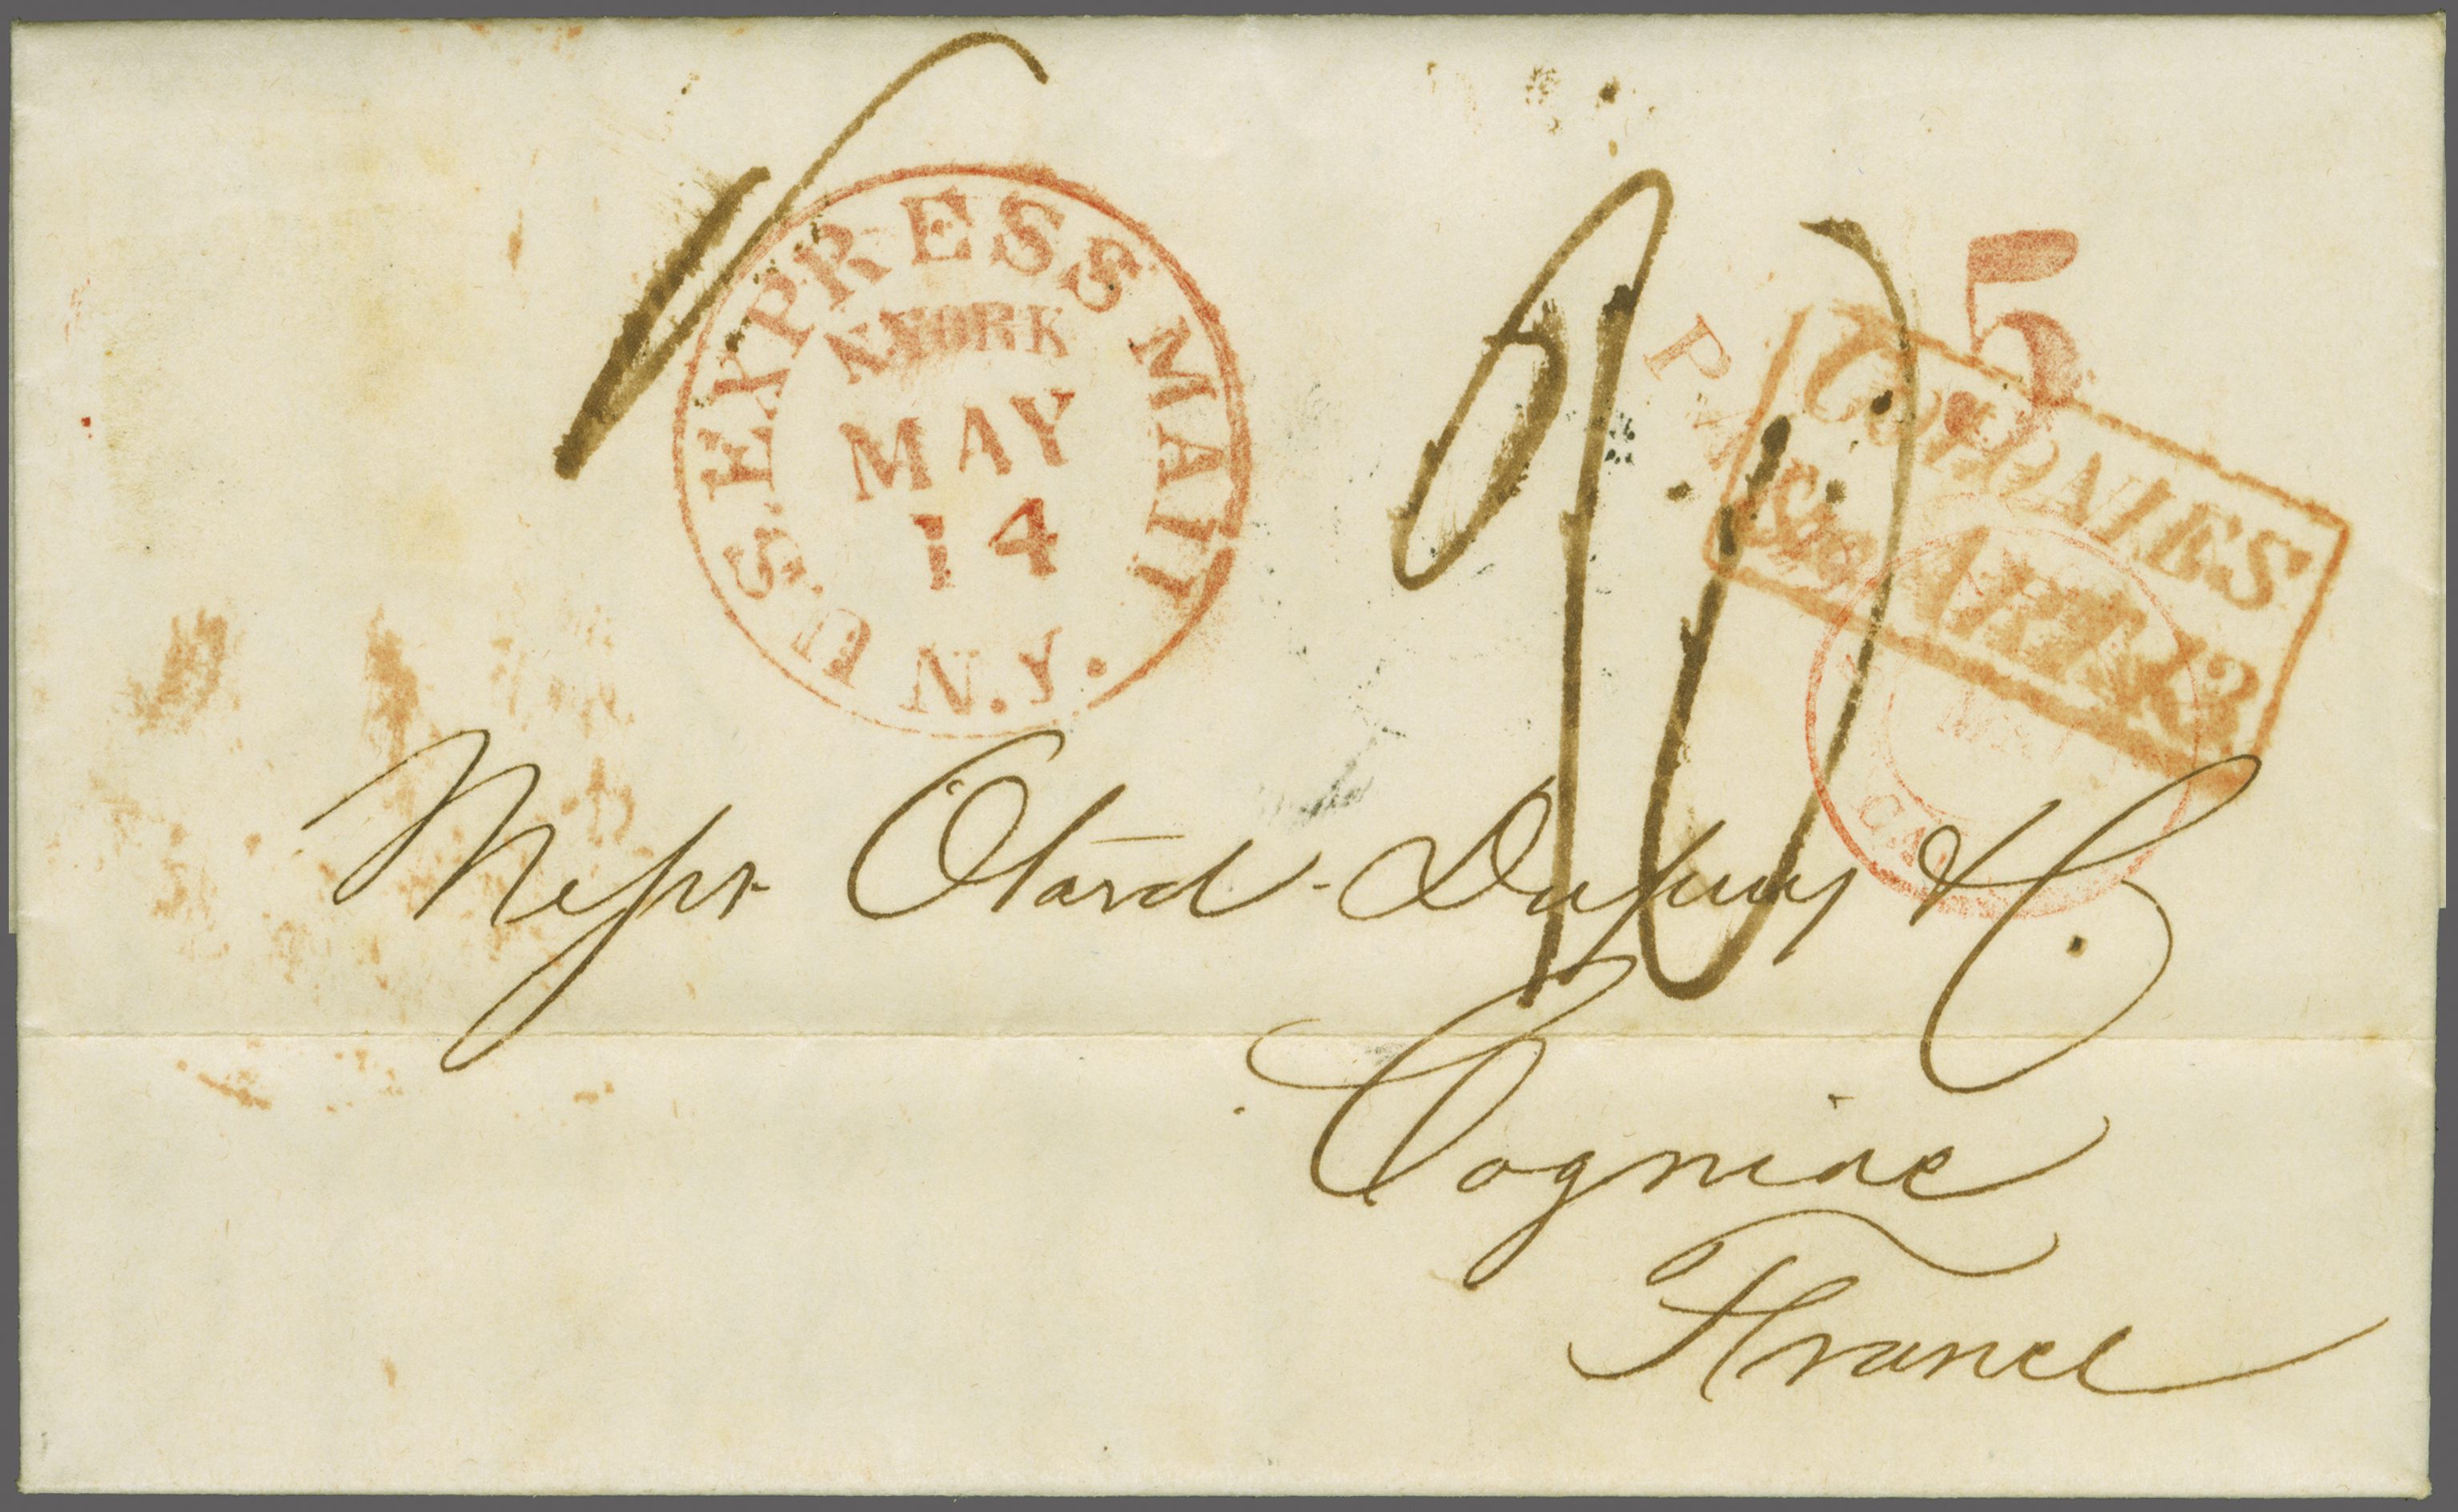 U.S. EXPRESS MAIL
N YORK
MAY
14
N.Y.
5
PAID
COLONIES
&c ART. 13
Messrs Otard-Dupuy & C.
Cogniac
France